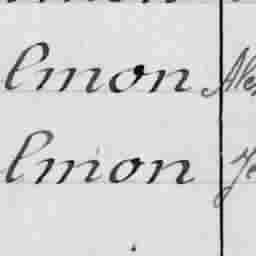 lmon Ale
lmon Je